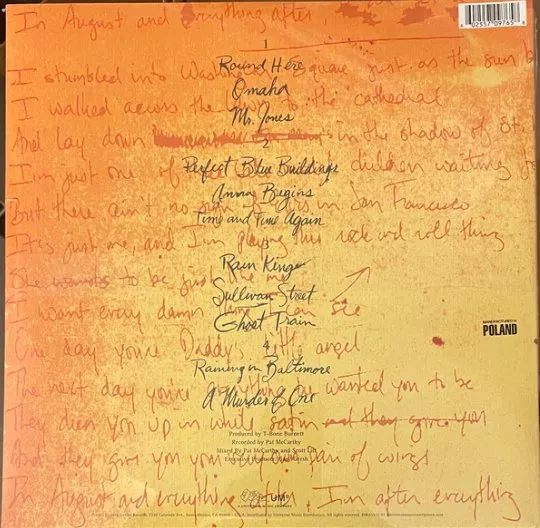 In August and Everything after,
1
Round Here
I stumbled into Washington Square just as the sun b
Omaha
I walked across the to the cathedral
Mr. Jones
And lay down in the shadow of St.
2
I'm just one of children waiting
Perfect Blue Buildings
Anna Begins
But there ain't no in San Francisco
Time and Time Again
It's just me, and I'm playing this rock and roll thing
3
Rain King
She wants to be just like me
Sullivan Street
I want every damn thing I can see
Ghost Train
One day you're Daddy's little angel
4
Raining in Baltimore
The next day you're wanted you to be
A Murder of One
They dress you up in white satin and they give you
Produced by T-Bone Burnett
Recorded by Pat McCarthy
Mixed By Pat McCarthy and Scott Litt
And they give you your own pair of wings
In August and everything after, I'm after everything
MANUFACTURED IN
POLAND
UMe